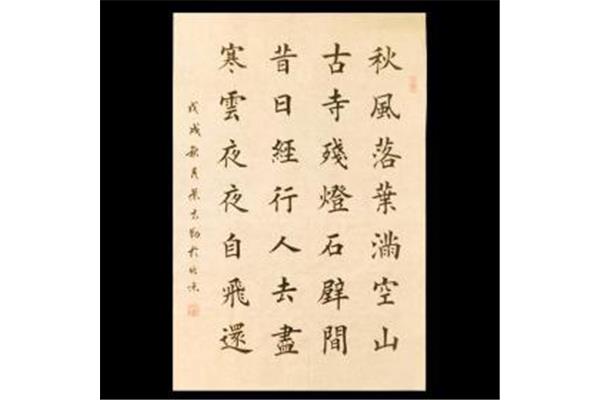 秋風落葉滿空山
古寺殘燈石壁間
昔日經行人去盡
寒雲夜夜自飛還
戊戌秋月葉
於北京